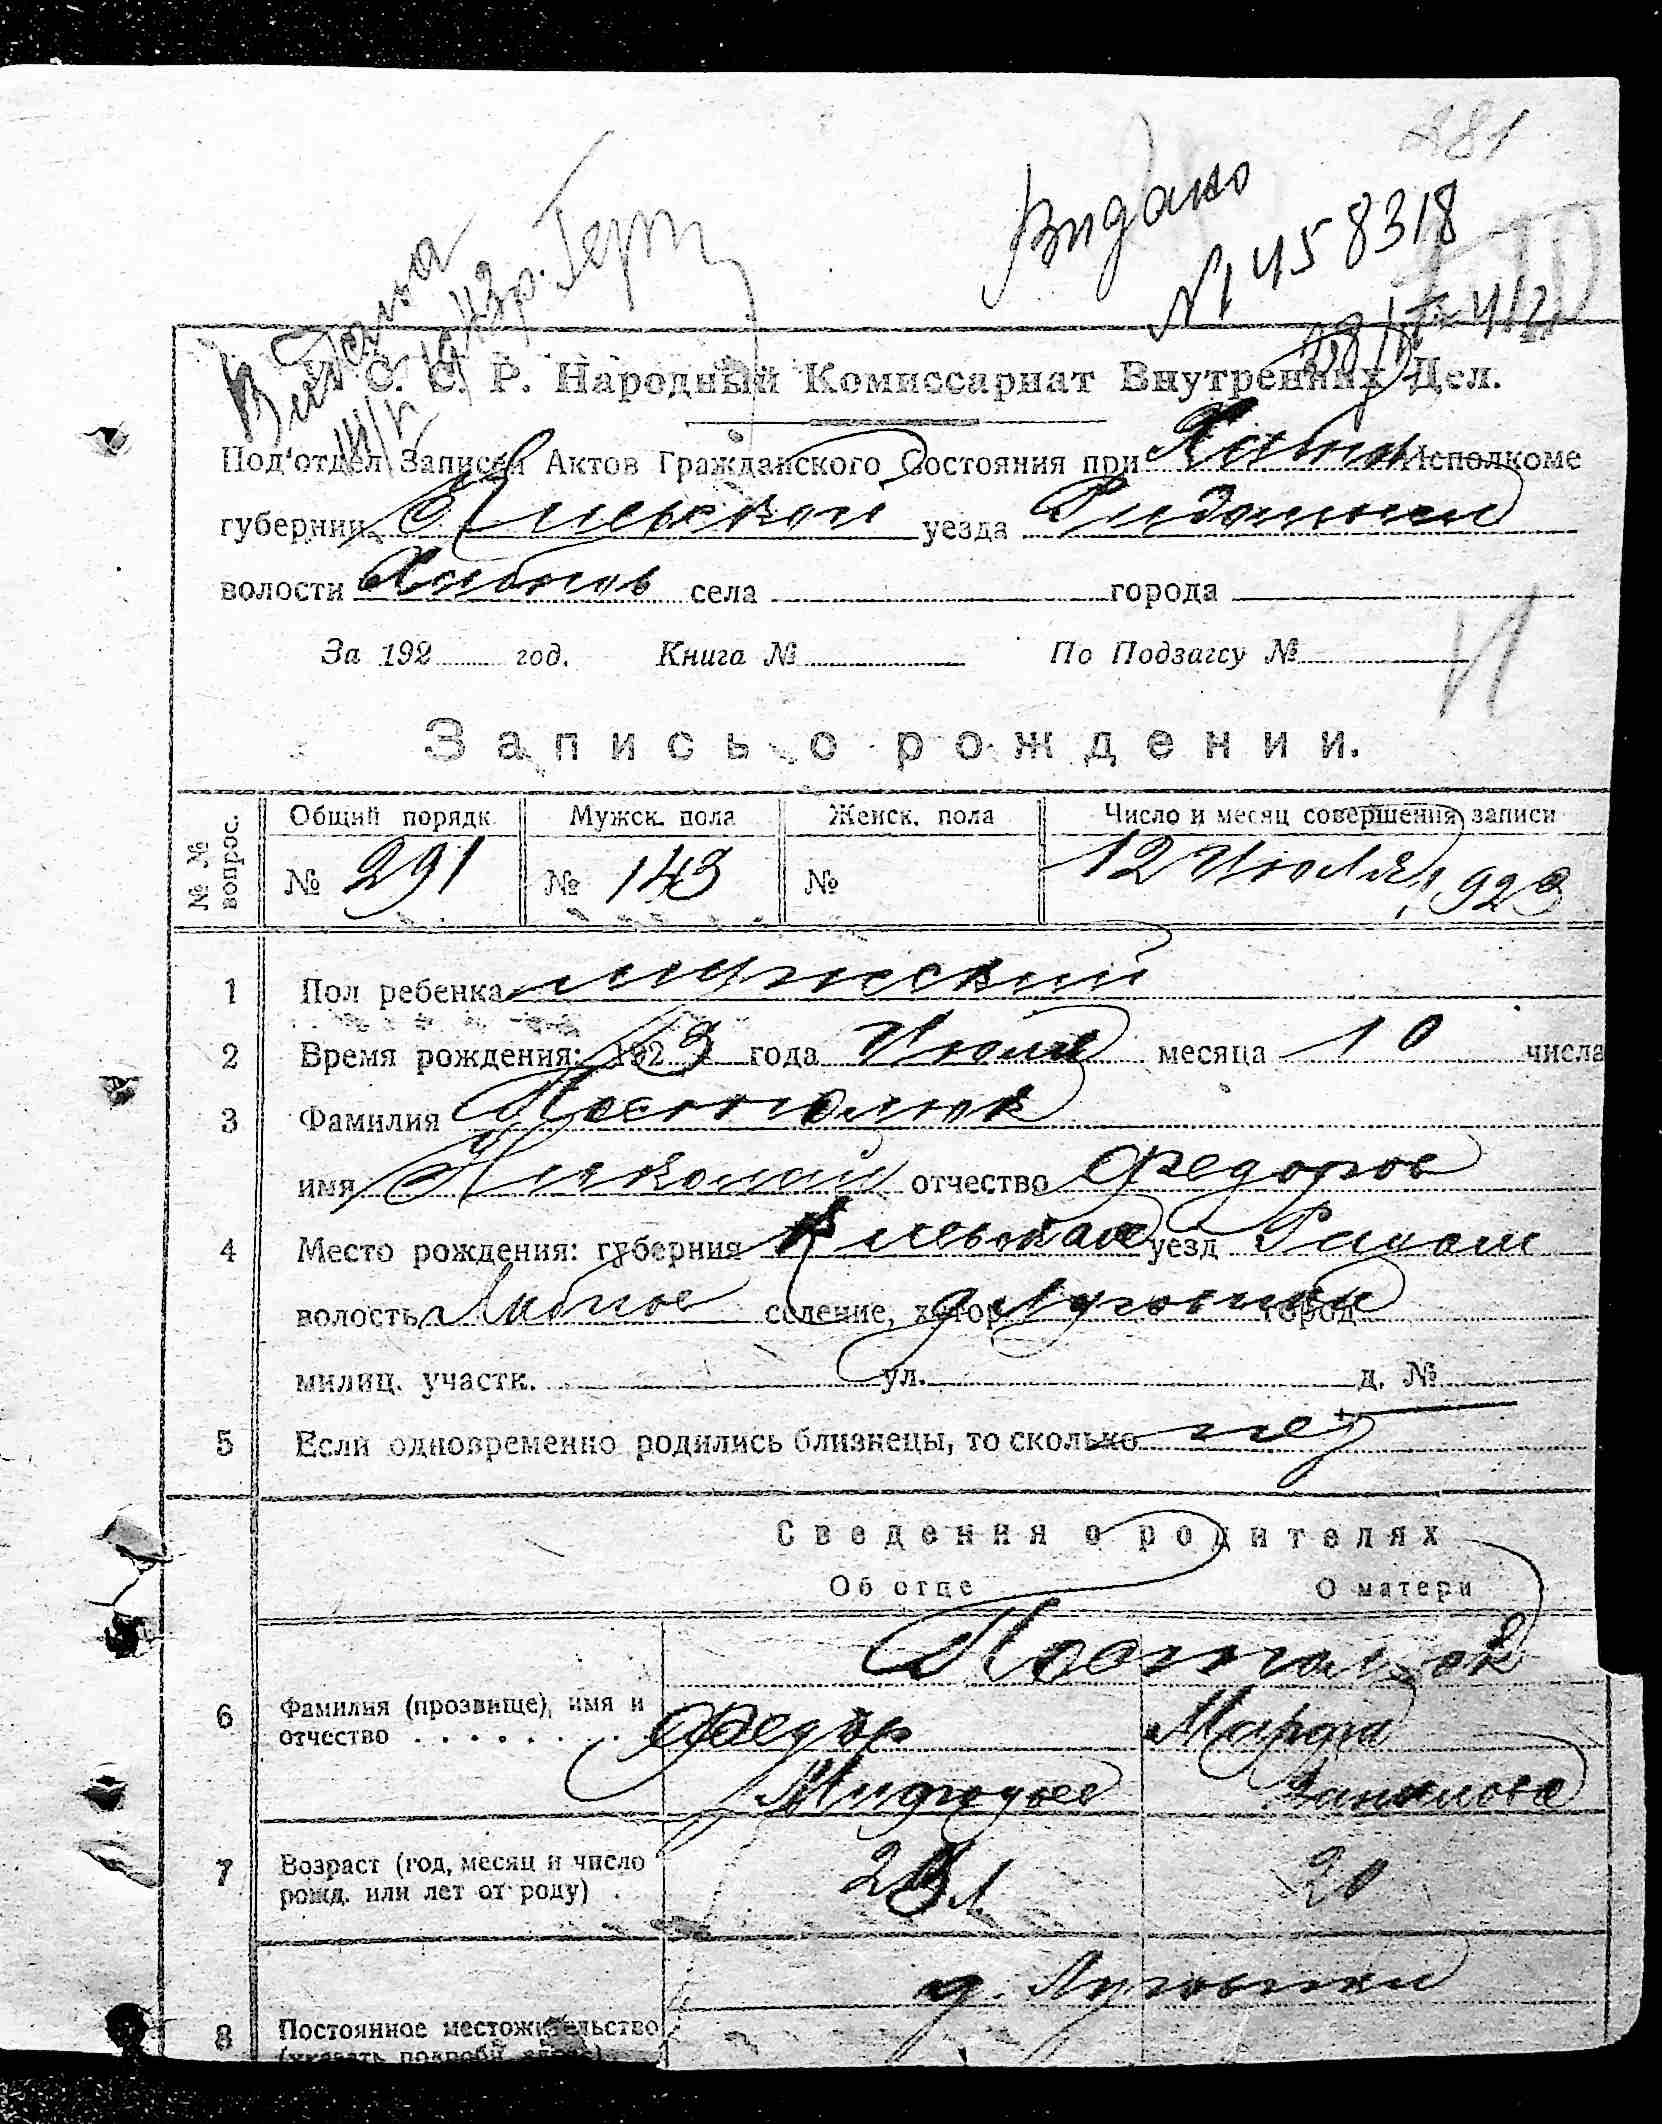 881
Видано
№ 458318
Витяг
С. С. Р. Народный Комиссариат Внутренних Дел.
Под'отдел Записей Актов Гражданского Состояния при Хабен Исполкоме
губернии Киевской уезда
волости Хабное села города
За 192 год. Книга № По Подзагсу №
Запись о рождении.
№ № вопрос. Общий порядк. Мужск. пола Женск. пола Число и месяц совершения записи
№ 291 № 143 № 12 Июля 1923
1 Пол ребенка мужеский
2 Время рождения: 1923 года Июля месяца 10 числа
3 Фамилия Постолюк
имя Николай отчество Федоров
4 Место рождения: губерния Киевская уезд Радом
волость Хабное селение, хутор д. Луговики город
милиц. участк. ул. д. №
5 Если одновременно родились близнецы, то сколько нет
Сведения о родителях
Об отце О матери
Постолюк
6 Фамилия (прозвище), имя и Федор Марфа
отчество Мифодьев Данилова
7 Возраст (год, месяц и число 20
рожд. или лет от роду)
д. Луговики
8 Постоянное местожительство
(указать подробн. адрес)